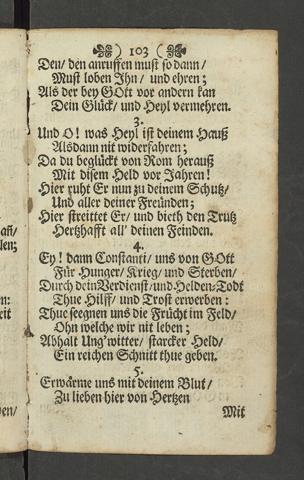 103
Den/ den anruffen must so dann/
Must loben Ihn/ und ehren;
Als der bey GOtt vor andern kan
Dein Glück/ und Heyl vermehren.
3.
Und O! was Heyl ist deinem Hauß
Alsdann nit widerfahren;
Da du beglückt von Rom herauß
Mit disem Held vor Jahren!
Hier ruht Er nun zu deinem Schutz/
Und aller deiner Freünden;
Hier streittet Er/ und bieth den Trutz
Hertzhafft all' deinen Feinden.
4.
Ey! dann Constanti/ uns von GOtt
Für Hunger/ Krieg/ und Sterben/
Durch dein Verdienst/ und Helden-Todt
Thue Hilff/ und Trost erwerben:
Thue seegnen uns die Frücht im Feld/
Ohn welche wir nit leben;
Abhalt Ung'witter/ starcker Held/
Ein reichen Schnitt thue geben.
5.
Erwärme uns mit deinem Blut/
Zu lieben hier von Hertzen
Mit